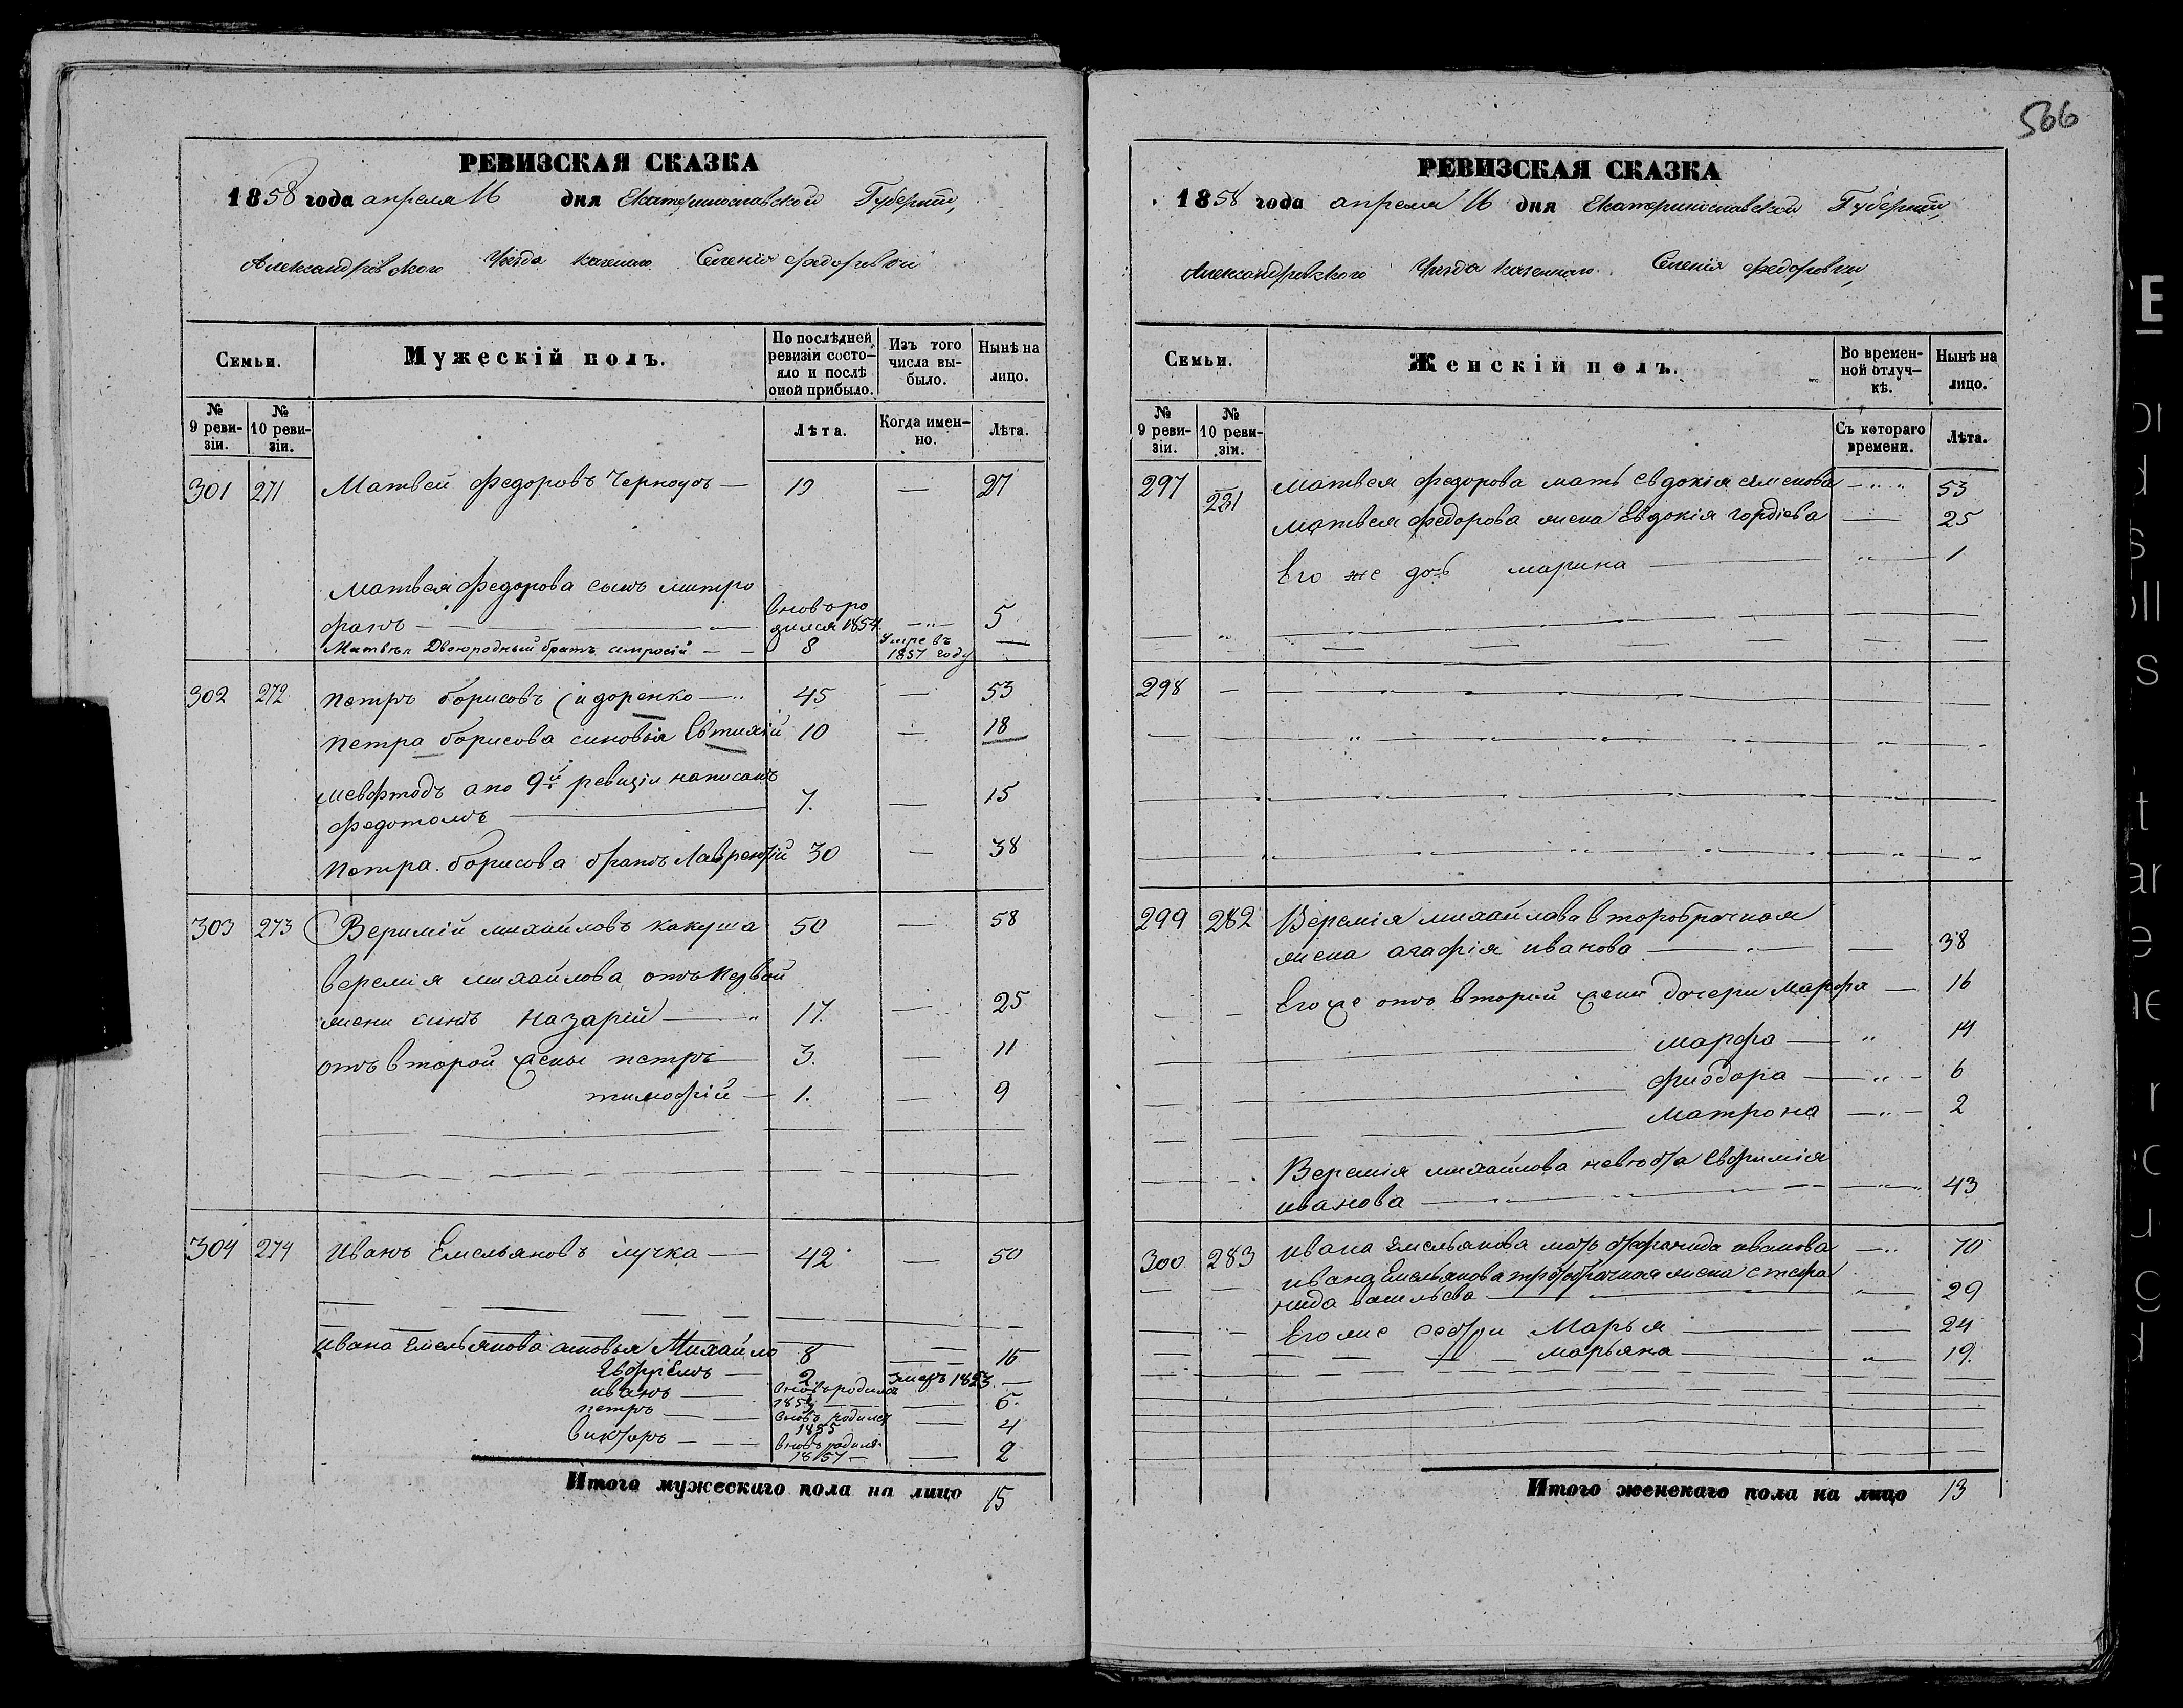 566
РЕВИЗСКАЯ СКАЗКА
1858 года апреля 16 дня Екатеринославской Губернии,
Александровского Уезда казенного Селения Федоровки
Семьи.
Мужескій полъ.
По послѣдней ревизіи состо-яло и послѣ оной прибыло.
Изъ того числа вы-было.
Нынѣ на лицо.
№ 9 реви-зіи.
№ 10 реви-зіи.
Лѣта.
Когда имен-но.
Лѣта.
301 271 Матвей Федоровъ Черноусъ — 19 — 27
Матвея Федорова сынъ митро
фанъ — вновь ро дился 1854 — 5
Матвея Двоюродный братъ амросій — 8 Умре въ 1857 году —
302 272 Петръ борисовъ Сидоренко — 45 53
Петра борисова синовья Евтихій 10 — 18
мевфтодъ а по 9й ревизіи написанъ
федотомъ — 7. — 15
Петра. борисова братъ Лаврентій 30 — 38
303 273 Веримій михайловъ какуша 50 — 58
веремія михайлова отъ первой
жени синъ назарій — 17. — 25
отъ второй жены петръ — 3. — 11
тимофій — 1. — 9
304 274 Иванъ Емельяновъ лучка — 42 — 50
ивана Емельянова синовья Михайло 8 — 16
Евфрѣмъ — 2 умеръ 1853 —
иванъ — вновь родился 185 — 6.
петръ — вновь родился 1855 — 4
викторъ — вновь родился 1857 — 2
Итого мужескаго пола на лицо 15
РЕВИЗСКАЯ СКАЗКА
1858 года апреля 16 дня Екатеринославской Губернии,
Александровского Уезда казенного Селения Федоровки,
Семьи.
Женскій полъ.
Во времен-ной отлуч-кѣ.
Нынѣ на лицо.
№ 9 реви-зіи.
№ 10 реви-зіи.
Съ котораго времени.
Лѣта.
297 281 Матвея федорова мать Евдокія семенова — 53
Матвея Федорова жена Евдокія гордіева — 25
Его же дочь марина — 1
298 —
299 282 Веремія михайлова второбрачная
жена агафія иванова — 38
Его же отъ второй жени дочери Марфа — 16
марфа — 14
фиодора — 6
матрона — 2
Веремія михайлова невестка Евфимія
иванова — 43
300 283 Ивана Емельянова мать иванова — 70
ивана Емельянова третобрачная жена стефа
нида васильева — 29
Его же сестри Марья — 24
марьяна — 19.
Итого женскаго пола на лицо 13